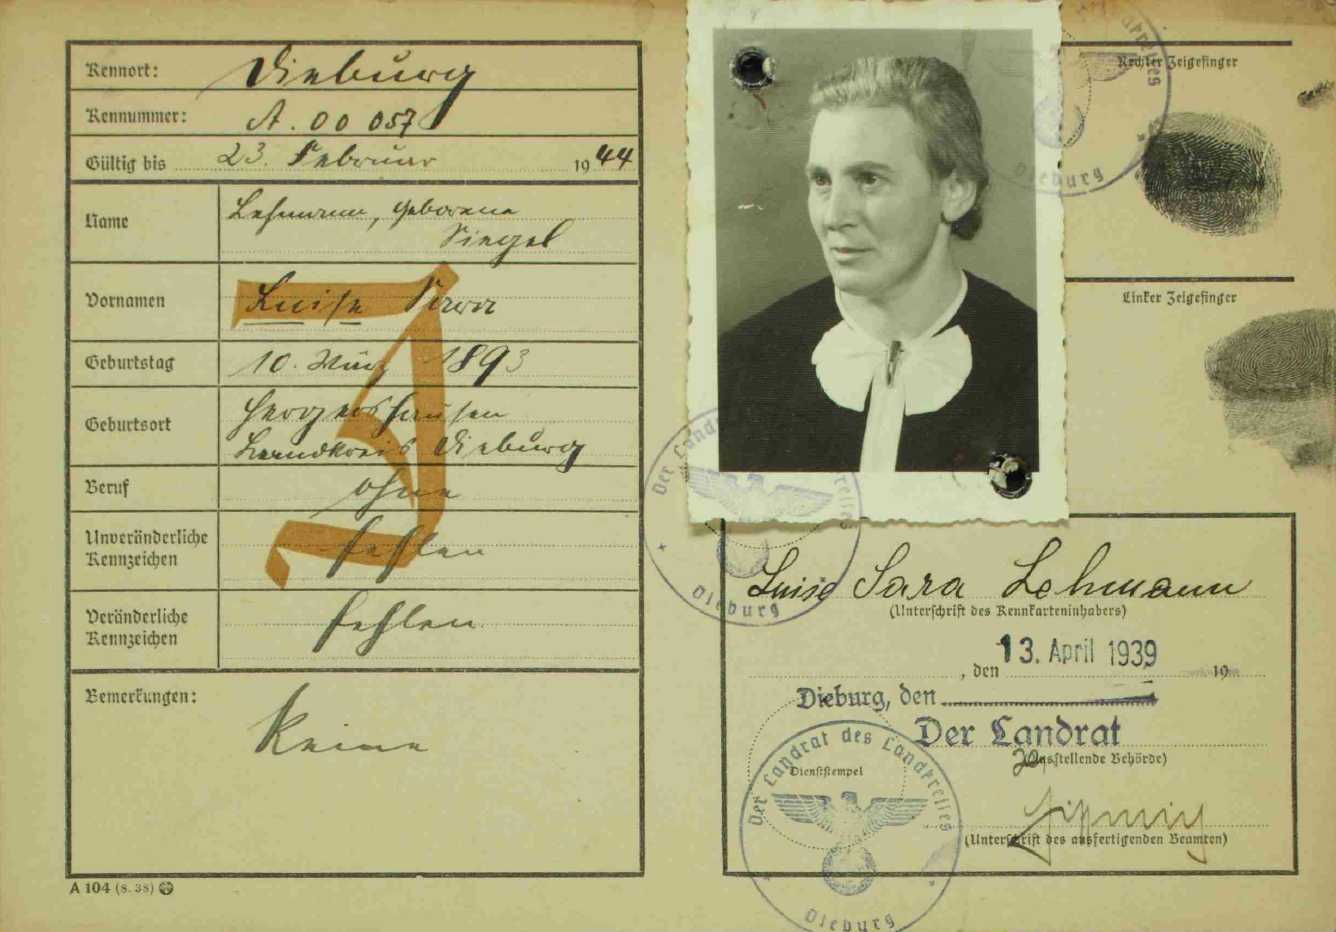 Kennort: Dieburg
Kennummer: A. 00 057
Gültig bis 23. Februar 1944
Name Lehmann, geborene
Siegel
Vornamen Luise Sara
Geburtstag 10. März 1893
Geburtsort Hergershausen
Landkreis Dieburg
Beruf ohne
Unveränderliche
Kennzeichen fehlen
Veränderliche
Kennzeichen fehlen
Bemerkungen:
Keine
J
A 104 (8. 38)
Rechter Zeigefinger
Dieburg
Linker Zeigefinger
Der Landrat des Landkreises
Dieburg
Luise Sara Lehmann
(Unterschrift des Kennkarteninhabers)
, den 13. April 1939 19
Dieburg, den
Der Landrat
(Ausstellende Behörde)
Der Landrat des Landkreises
Dienststempel
Dieburg
(Unterschrift des ausfertigenden Beamten)